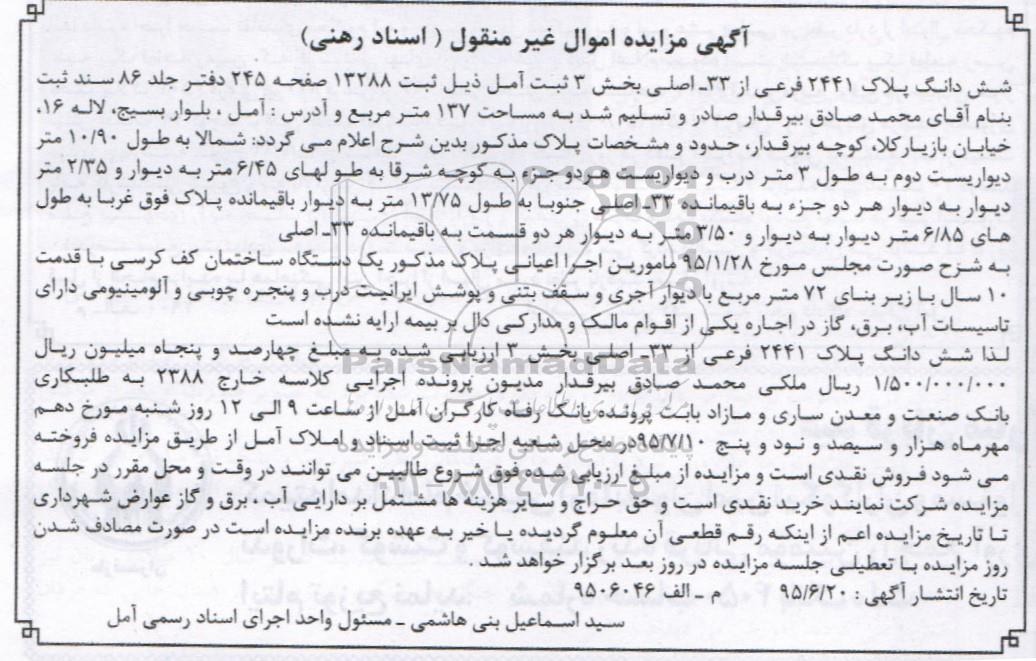 آگهی مزایده اموال غیر منقول ( اسناد رهنی)
شش دانگ پلاک ۲۴۴۱ فرعی از ۳۳ـ اصلی بخش ۳ ثبت آمل ذیل ثبت ۱۳۲۸۸ صفحه ۲۴۵ دفتر جلد ۸۶ سند ثبت
بنام آقای محمد صادق بیرقدار صادر و تسلیم شد به مساحت ۱۳۷ متر مربع و آدرس : آمل ـ بلوار بسیج، لاله ۱۶،
خیابان بازیارکلا، کوچه بیرقدار، حدود و مشخصات پلاک مذکور بدین شرح اعلام می گردد: شمالا به طول ۱۰/۹۰ متر
دیواریست دوم به طول ۳ متر درب و دیواریست هردو جزء به کوچه شرقا به طولهای ۶/۴۵ متر به دیوار و ۲/۳۵ متر
دیوار به دیوار هر دو جزء به باقیمانده ۳۳ـ اصلی جنوبا به طول ۱۳/۷۵ متر به دیوار باقیمانده پلاک فوق غربا به طول
های ۶/۸۵ متر دیوار به دیوار و ۳/۵۰ متر به دیوار هر دو قسمت به باقیمانده ۳۳ـ اصلی
به شرح صورت مجلس مورخ ۹۵/۱/۲۸ مامورین اجرا اعیانی پلاک مذکور یک دستگاه ساختمان کف کرسی با قدمت
۱۰ سال با زیر بنای ۷۲ متر مربع با دیوار آجری و سقف بتنی و پوشش ایرانیت درب و پنجره چوبی و آلومینیومی دارای
تاسیسات آب، برق، گاز در اجاره یکی از اقوام مالک و مدارکی دال بر بیمه ارایه نشده است
لذا شش دانگ پلاک ۲۴۴۱ فرعی از ۳۳ـ اصلی بخش ۳ ارزیابی شده به مبلغ چهارصد و پنجاه میلیون ریال
۱/۵۰۰/۰۰۰/۰۰۰ ریال ملکی محمد صادق بیرقدار مدیون پرونده اجرایی کلاسه خارج ۲۳۸۸ به طلبکاری
بانک صنعت و معدن ساری و مازاد بابت پرونده بانک رفاه کارگران آمل از ساعت ۹ الی ۱۲ روز شنبه مورخ دهم
مهرماه هزار و سیصد و نود و پنج ۹۵/۷/۱۰ در محل شعبه اجرا ثبت اسناد و املاک آمل از طریق مزایده فروخته
می شود فروش نقدی است و مزایده از مبلغ ارزیابی شده فوق شروع طالبین می توانند در وقت و محل مقرر در جلسه
مزایده شرکت نمایند خرید نقدی است و حق حراج و سایر هزینه ها مشتمل بر دارایی آب، برق و گاز عوارض شهرداری
تا تاریخ مزایده اعم از اینکه رقم قطعی آن معلوم گردیده یا خیر به عهده برنده مزایده است در صورت مصادف شدن
روز مزایده با تعطیلی جلسه مزایده در روز بعد برگزار خواهد شد .
تاریخ انتشار آگهی : ۹۵/۶/۲۰ م ـ الف ۹۵۰۶۰۴۶
سید اسماعیل بنی هاشمی ـ مسئول واحد اجرای اسناد رسمی آمل
ParsNamadData